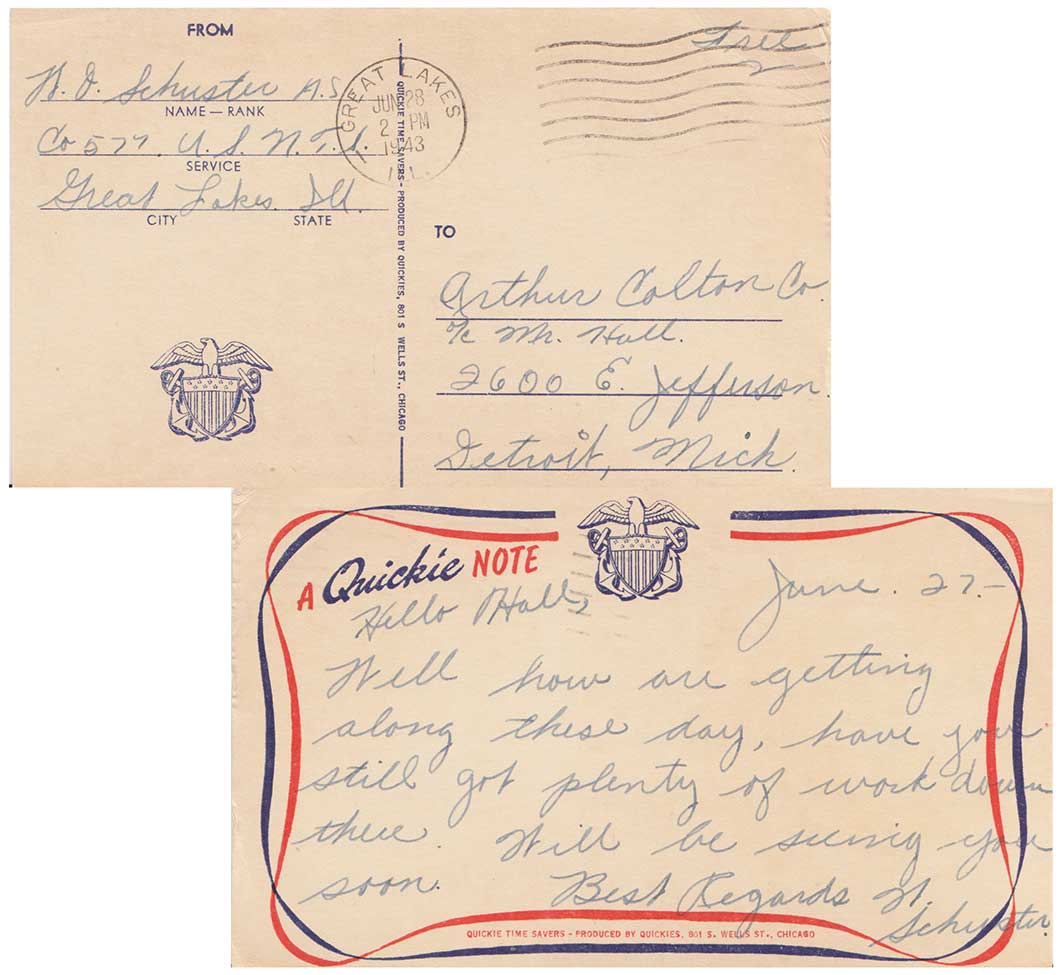 FROM
W. D. Schuster A.S.
NAME — RANK
Co 577. U. S. N. T. S.
SERVICE
Great Lakes. Ill.
CITY STATE
GREAT LAKES
JUN 28
2 PM
1943
ILL.
Free
QUICKIE TIME SAVERS - PRODUCED BY QUICKIES, 801 S WELLS ST., CHICAGO
TO
Arthur Colton Co.
c/o Mr. Hall.
2600 E. Jefferson
Detroit, Mich.
A Quickie NOTE
June. 27.-
Hello Hall,
Well how are getting
along these day, have your
still got plenty of work down
there. Will be seeing you
soon. Best Regards W.
Schuster.
QUICKIE TIME SAVERS - PRODUCED BY QUICKIES, 801 S. WELLS ST., CHICAGO